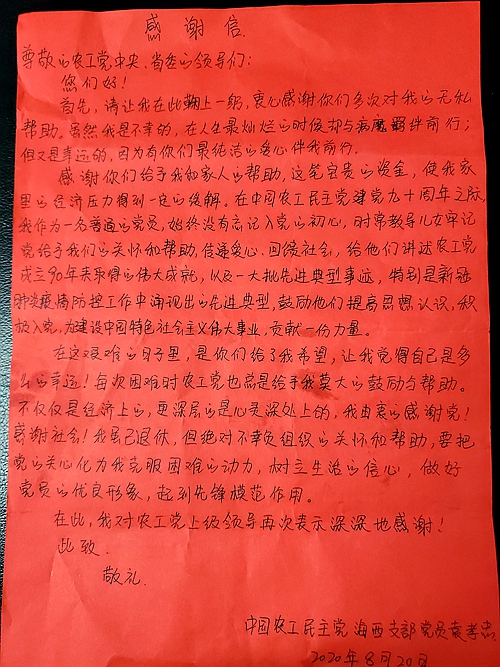 感谢信
尊敬的农工党中央、省委的领导们:
您们好!
首先,请让我在此鞠上一躬,衷心感谢你们多次对我的无私
帮助。虽然我是不幸的,在人生最灿烂的时候却与病魔羁绊前行;
但又是幸运的,因为有你们最纯洁的爱心伴我前行。
感谢你们给予我和家人的帮助,这笔宝贵的资金,使我家
里的经济压力得到一定的缓解。在中国农工民主党建党九十周年之际,
我作为一名普通的党员,始终没有忘记入党的初心,时常教导儿女牢记
党给予我们的关怀和帮助,传递爱心、回馈社会,给他们讲述农工党
成立90年来取得的伟大成就,以及一大批先进典型事迹,特别是新冠
肺炎疫情防控工作中涌现出的先进典型,鼓励他们提高思想认识,积
极入党,为建设中国特色社会主义伟大事业,贡献一份力量。
在这艰难的日子里,是你们给了我希望,让我觉得自己是多
么的幸运!每次困难时农工党也总是给予我莫大的鼓励与帮助。
不仅仅是经济上的,更深层的是心灵深处上的,我由衷的感谢党!
感谢社会!我虽已退休,但绝对不辜负组织的关怀和帮助,要把
党的关心化为我克服困难的动力,树立生活的信心,做好
党员的优良形象,起到先锋模范作用。
在此,我对农工党上级领导再次表示深深地感谢!
此致
敬礼.
中国农工民主党海西支部党员袁孝忠
2020年8月20日